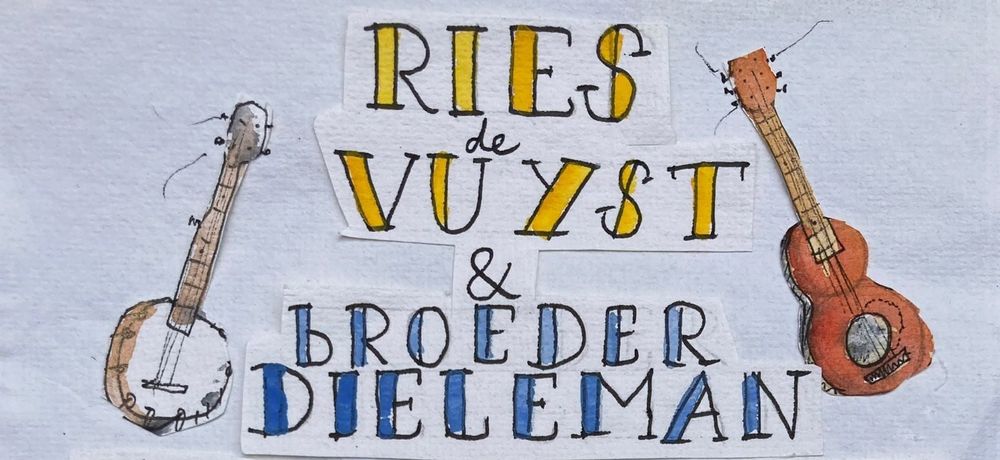 RIES
de
VUYST
&
bROEDER
DIELEMAN